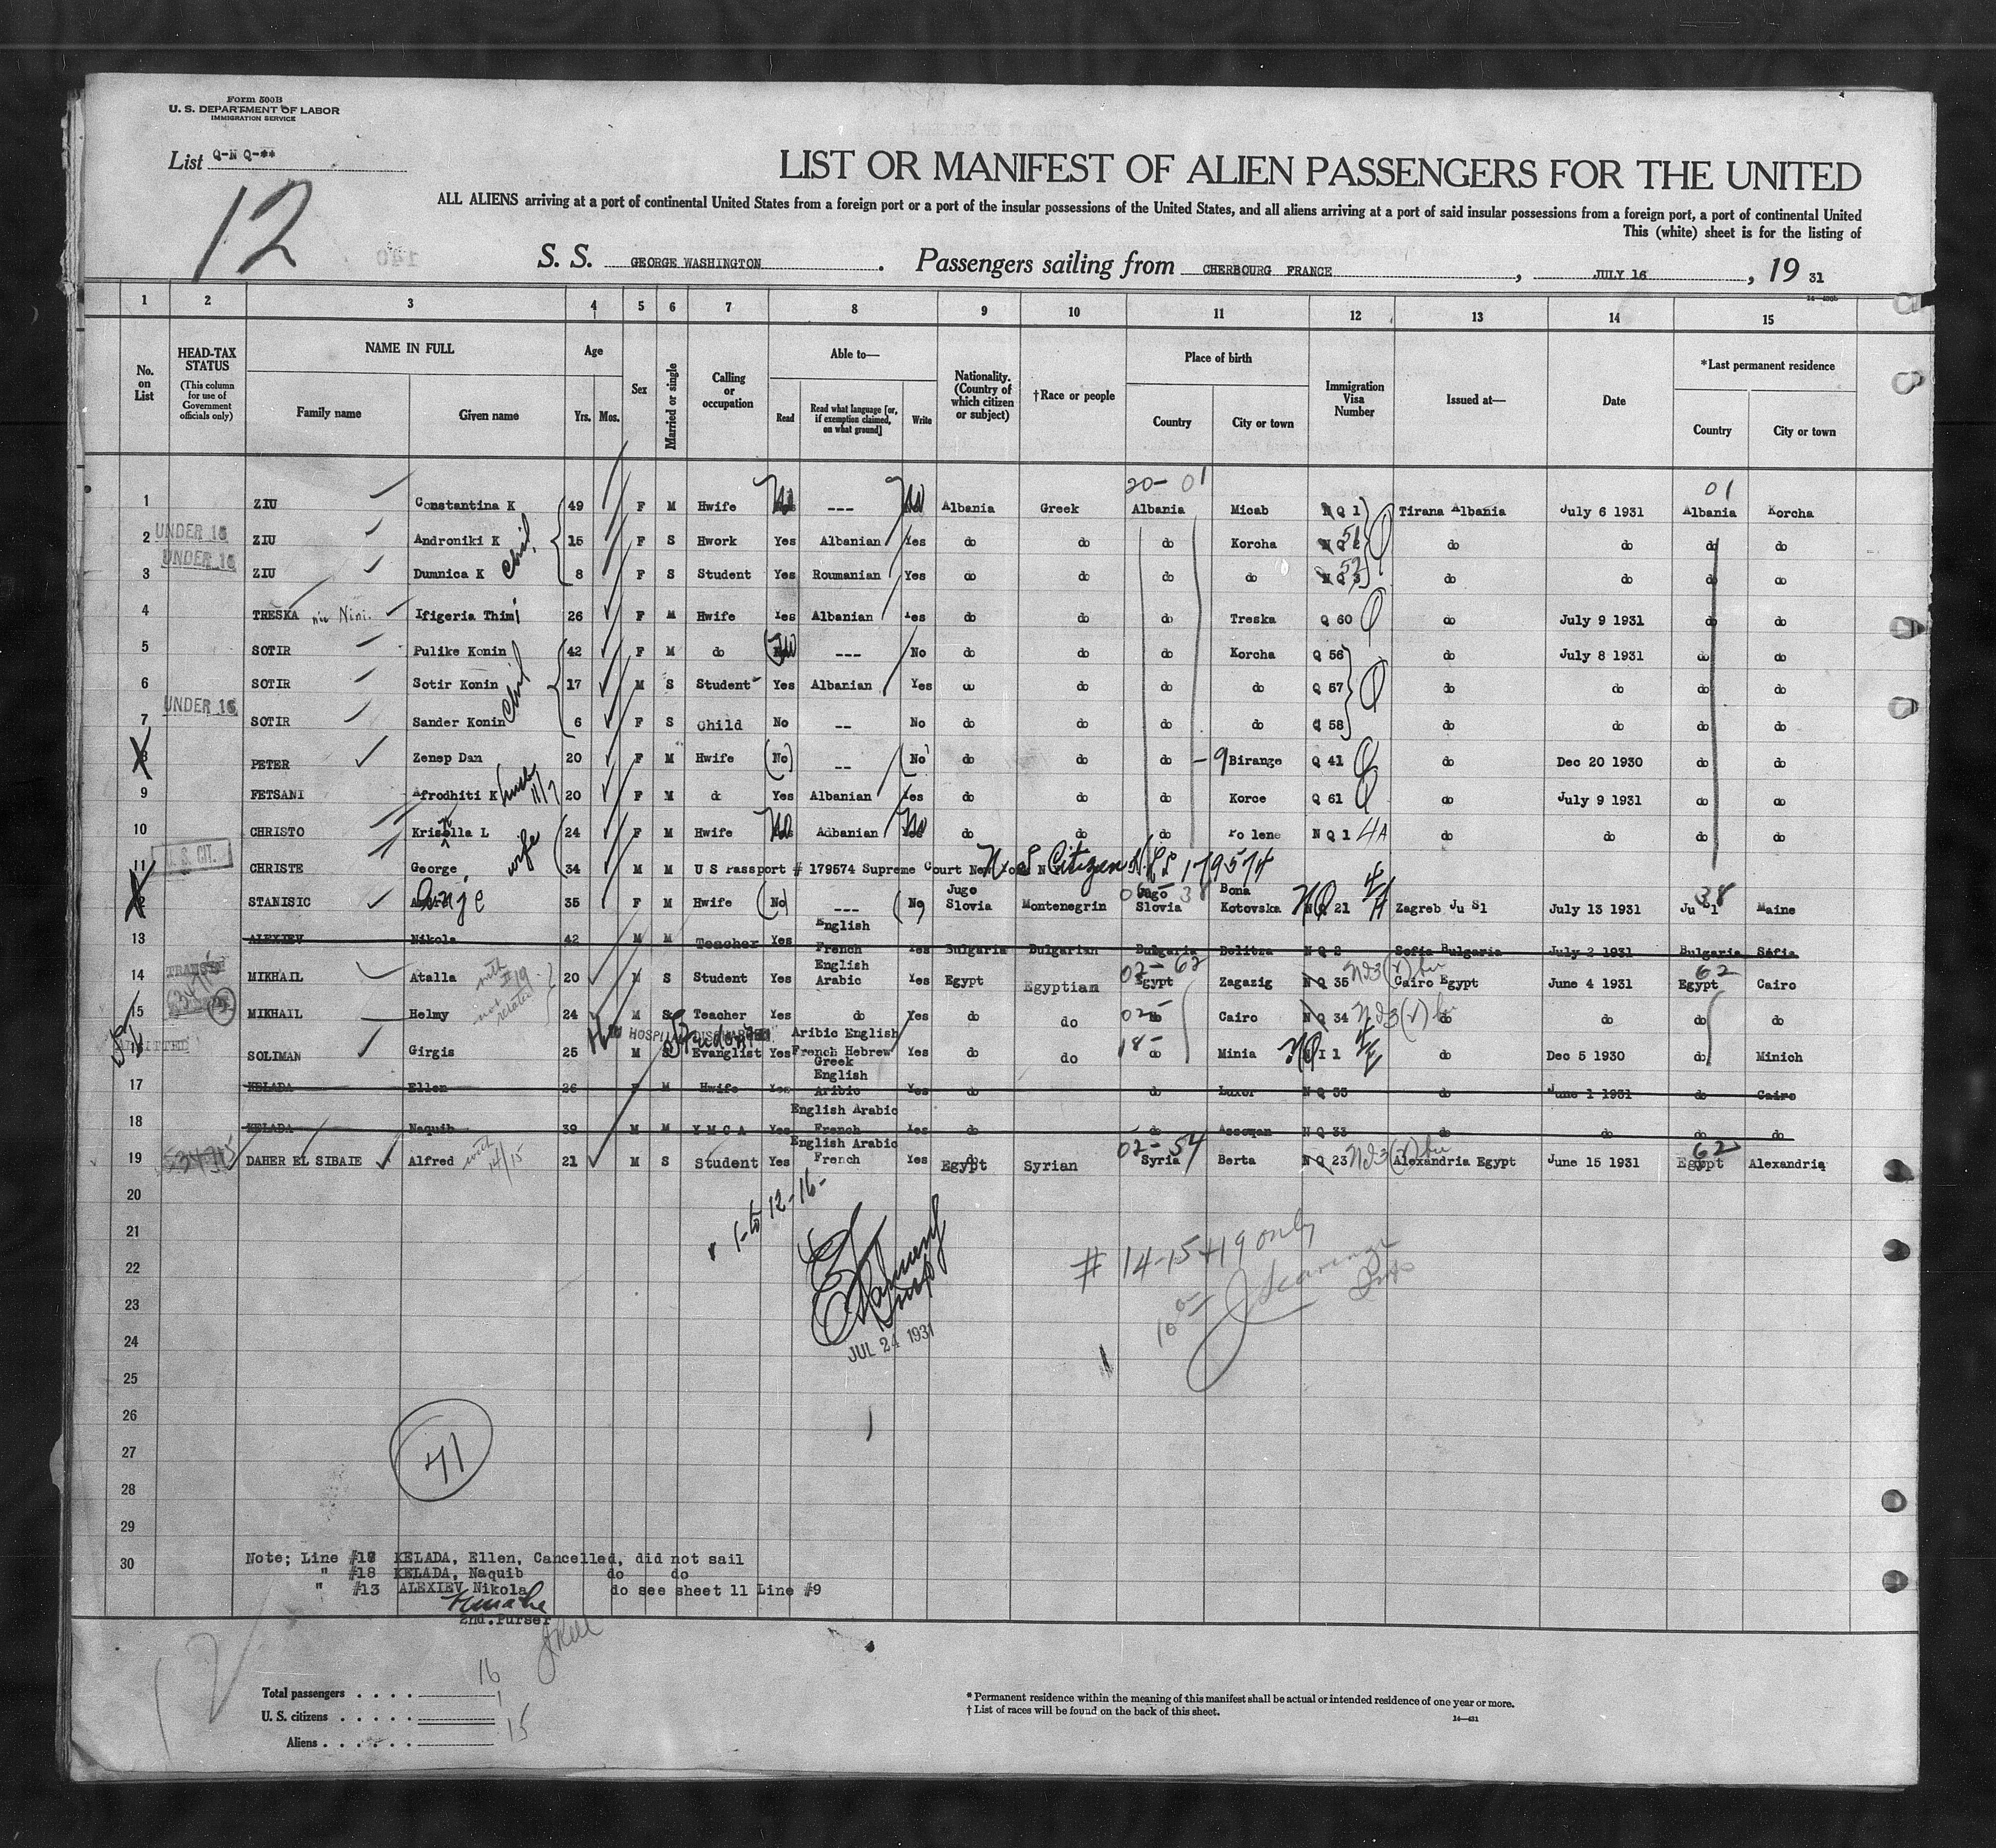 Form 500B
U. S. DEPARTMENT OF LABOR
IMMIGRATION SERVICE
List Q-N Q-**
12
LIST OR MANIFEST OF ALIEN PASSENGERS FOR THE UNITED
ALL ALIENS arriving at a port of continental United States from a foreign port or a port of the insular possessions of the United States, and all aliens arriving at a port of said insular possessions from a foreign port, a port of continental United
This (white) sheet is for the listing of
S. S. GEORGE WASHINGTON . Passengers sailing from CHERBOURG FRANCE , JULY 16 , 19 31
1 2 3 4 5 6 7 8 9 10 11 12 13 14 15
No. on List
HEAD-TAX STATUS (This column for use of Government officials only)
NAME IN FULL Family name Given name
Age Yrs. Mos.
Sex
Married or single
Calling or occupation
Able to— Read Read what language [or, if exemption claimed, on what ground] Write
Nationality. (Country of which citizen or subject)
†Race or people
Place of birth Country City or town
Immigration Visa Number
Issued at—
Date
*Last permanent residence Country City or town
20- 01 01
1 ZIU Constantina K 49 F M Hwife No --- No Albania Greek Albania Micab N Q 1 Tirana Albania July 6 1931 Albania Korcha
2 UNDER 16 ZIU Androniki K 15 F S Hwork Yes Albanian Yes do do do Korcha N Q 2 51 do do do do
3 UNDER 16 ZIU Dumnica K 8 F S Student Yes Roumanian Yes do do do do N Q 3 52 do do do do
4 TRESKA nee Nini Ifigeria Thimi 26 F M Hwife Yes Albanian Yes do do do Treska Q 60 do July 9 1931 do do
5 SOTIR Pulike Konin 42 F M do No --- No do do do Korcha Q 56 do July 8 1931 do do
6 SOTIR Sotir Konin 17 M S Student Yes Albanian Yes do do do do Q 57 do do do do
7 UNDER 16 SOTIR Sander Konin 6 F S Child No -- No do do do do Q 58 do do do do
8 PETER Zenep Dan 20 F M Hwife (No) -- (No) do do do - 9 Birange Q 41 do Dec 20 1930 do do
9 FETSANI Afrodhiti K 20 F M do Yes Albanian Yes do do do Korce Q 61 do July 9 1931 do do
10 CHRISTO Krisella L wife 24 F M Hwife No Adbanian No do do do Polene N Q 1 4A do do do do
11 U.S. CIT. CHRISTE George, 34 M M U S Passport # 179574 Supreme Court New York N Citizen 179574
12 STANISIC Anje 35 F M Hwife (No) --- (No) Jugo Slovia Montenegrin Jugo Slovia 38 Bona Kotovska N Q 21 Zagreb Ju Sl July 13 1931 Ju Sl 38 Maine
13 ALEXIEV Nikola 42 M M Teacher Yes English French Yes Bulgaria Bulgarian Bulgaria Bolitza N Q 2 Sofia Bulgaria July 2 1931 Bulgaria Sofia
14 MIKHAIL Atalla with #19 20 M S Student Yes English Arabic Yes Egypt Egyptian 02-62 Egypt Zagazig N Q 35 Cairo Egypt June 4 1931 62 Egypt Cairo
15 MIKHAIL Helmy not related 24 M S Teacher Yes do Yes do do 02- do Cairo N Q 34 do do do do
ADMITTED SOLIMAN Girgis 25 M S HOSPITAL DISCHARGED Student Evanglist Yes Aribic English French Hebrew Greek Yes do do 18- do Minia N Q I 1 do Dec 5 1930 do Minich
17 KELADA Ellen 26 F M Hwife Yes English Aribic Yes do do Luxor N Q 35 do June 1 1931 do Cairo
18 KELADA Naquib 39 M M Y M C A Yes English Arabic French Yes do do Assowan N Q 33 do do do do
19 DAHER EL SIBAIE Alfred with 14/15 21 M S Student Yes English Arabic French Yes Egypt Syrian 02-54 Syria Berta N Q 23 Alexandria Egypt June 15 1931 62 Egypt Alexandria
20
1-to 12-16-
21
# 14-15+19 only
22
23
24
JUL 24 1931
25
26
27
41
28
29
30
Note; Line #18 KELADA, Ellen, Cancelled, did not sail
" #18 KELADA, Naquib do do
" #13 ALEXIEV Nikola do see sheet 11 Line #9
2nd.Purser
12
Total passengers . . . . 16
U. S. citizens . . . . . 1
Aliens . . . . . 15
* Permanent residence within the meaning of this manifest shall be actual or intended residence of one year or more.
† List of races will be found on the back of this sheet.
14—431